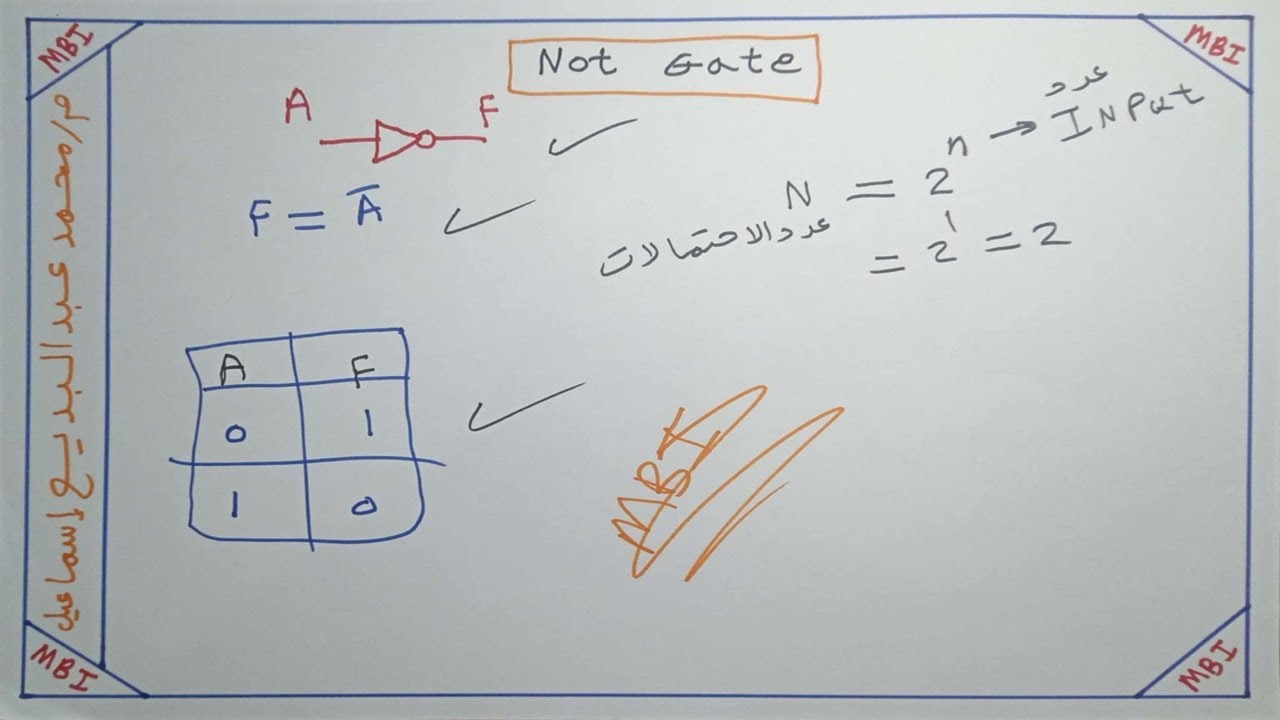 MBI
MBI
Not Gate
A
F
F = A̅
عدد
N = 2ⁿ → INPut
عدد الاحتمالات
= 2¹ = 2
A F
0 1
1 0
MBI
م/محمد عبد البديع إسماعيل
MBI
MBI